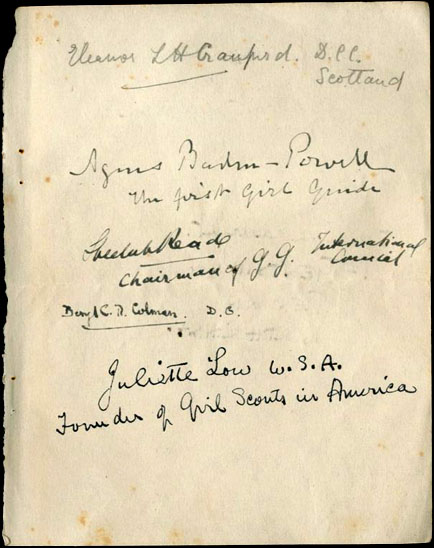 Eleanor L H Cranford. D.C.C.
Scotland
Agnes Baden-Powell
The first Girl Guide
Read
Chairman of G.G. International
Council
Beryl C. D. Colman. D.C.
Juliette Low U.S.A.
Founder of Girl Scouts in America